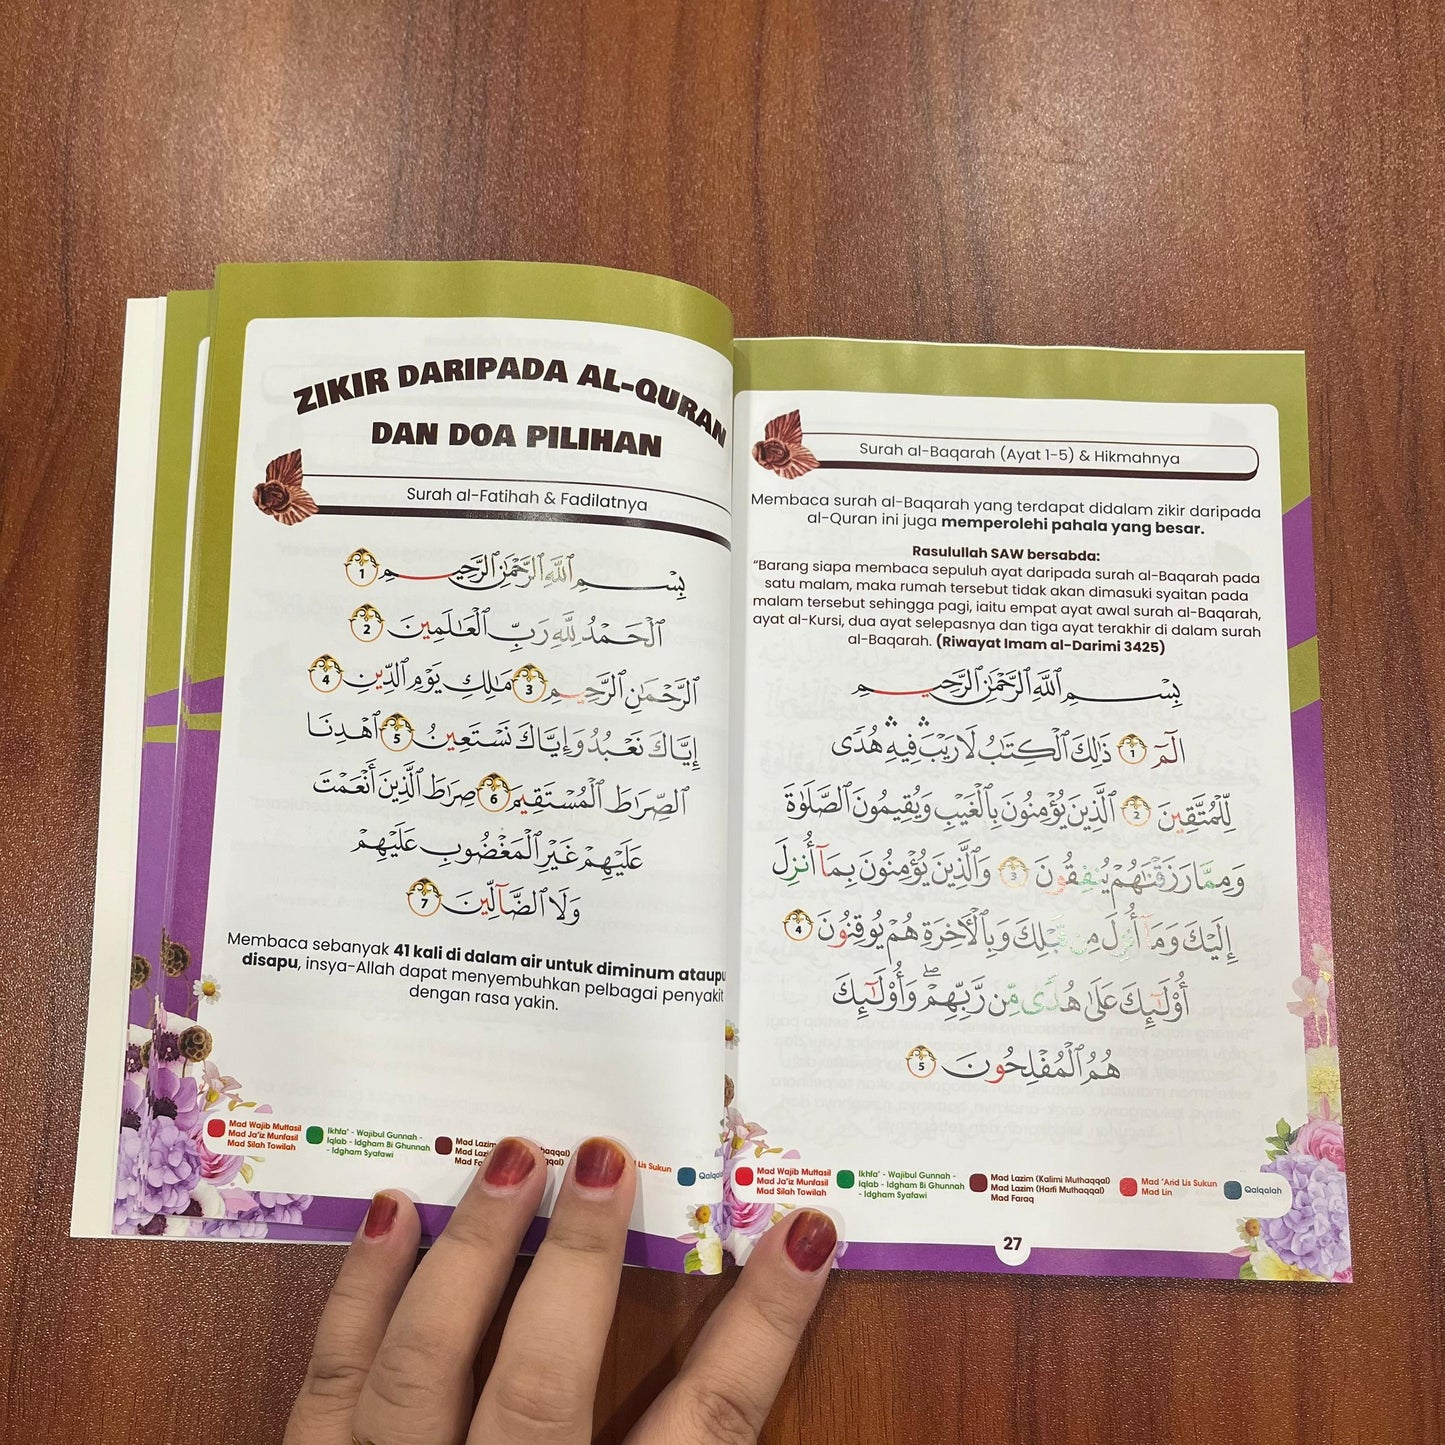 ZIKIR DARIPADA AL-QURAN
DAN DOA PILIHAN
Surah al-Fatihah & Fadilatnya
بِسْمِ ٱللَّهِ ٱلرَّحْمَٰنِ ٱلرَّحِيمِ 1
ٱلْحَمْدُ لِلَّهِ رَبِّ ٱلْعَٰلَمِينَ 2
ٱلرَّحْمَٰنِ ٱلرَّحِيمِ 3 مَٰلِكِ يَوْمِ ٱلدِّينِ 4
إِيَّاكَ نَعْبُدُ وَإِيَّاكَ نَسْتَعِينُ 5 ٱهْدِنَا
ٱلصِّرَٰطَ ٱلْمُسْتَقِيمَ 6 صِرَٰطَ ٱلَّذِينَ أَنْعَمْتَ
عَلَيْهِمْ غَيْرِ ٱلْمَغْضُوبِ عَلَيْهِمْ
وَلَا ٱلضَّآلِّينَ 7
Membaca sebanyak 41 kali di dalam air untuk diminum ataupu
disapu, insya-Allah dapat menyembuhkan pelbagai penyakit
dengan rasa yakin.
Mad Wajib Muttasil
Mad Ja'iz Munfasil
Mad Silah Towilah
Ikhfa' - Wajibul Gunnah -
Iqlab - Idgham Bi Ghunnah
- Idgham Syafawi
Mad Lazim
Lis Sukun
Surah al-Baqarah (Ayat 1-5) & Hikmahnya
Membaca surah al-Baqarah yang terdapat didalam zikir daripada
al-Quran ini juga memperolehi pahala yang besar.
Rasulullah SAW bersabda:
“Barang siapa membaca sepuluh ayat daripada surah al-Baqarah pada
satu malam, maka rumah tersebut tidak akan dimasuki syaitan pada
malam tersebut sehingga pagi, iaitu empat ayat awal surah al-Baqarah,
ayat al-Kursi, dua ayat selepasnya dan tiga ayat terakhir di dalam surah
al-Baqarah. (Riwayat Imam al-Darimi 3425)
بِسْمِ ٱللَّهِ ٱلرَّحْمَٰنِ ٱلرَّحِيمِ
الٓمٓ 1 ذَٰلِكَ ٱلْكِتَٰبُ لَا رَيْبَ ۛ فِيهِ ۛ هُدًى
لِّلْمُتَّقِينَ 2 ٱلَّذِينَ يُؤْمِنُونَ بِٱلْغَيْبِ وَيُقِيمُونَ ٱلصَّلَوٰةَ
وَمِمَّا رَزَقْنَٰهُمْ يُنفِقُونَ 3 وَٱلَّذِينَ يُؤْمِنُونَ بِمَآ أُنزِلَ
إِلَيْكَ وَمَآ أُنزِلَ مِن قَبْلِكَ وَبِٱلْأَخِرَةِ هُمْ يُوقِنُونَ 4
أُو۟لَٰٓئِكَ عَلَىٰ هُدًى مِّن رَّبِّهِمْ ۖ وَأُو۟لَٰٓئِكَ
هُمُ ٱلْمُفْلِحُونَ 5
Mad Wajib Muttasil
Mad Ja'iz Munfasil
Mad Silah Towilah
Ikhfa' - Wajibul Gunnah -
Iqlab - Idgham Bi Ghunnah
- Idgham Syafawi
Mad Lazim (Kalimi Muthaqqal)
Mad Lazim (Harfi Muthaqqal)
Mad Faraq
Mad 'Arid Lis Sukun
Mad Lin
Qalqalah
27